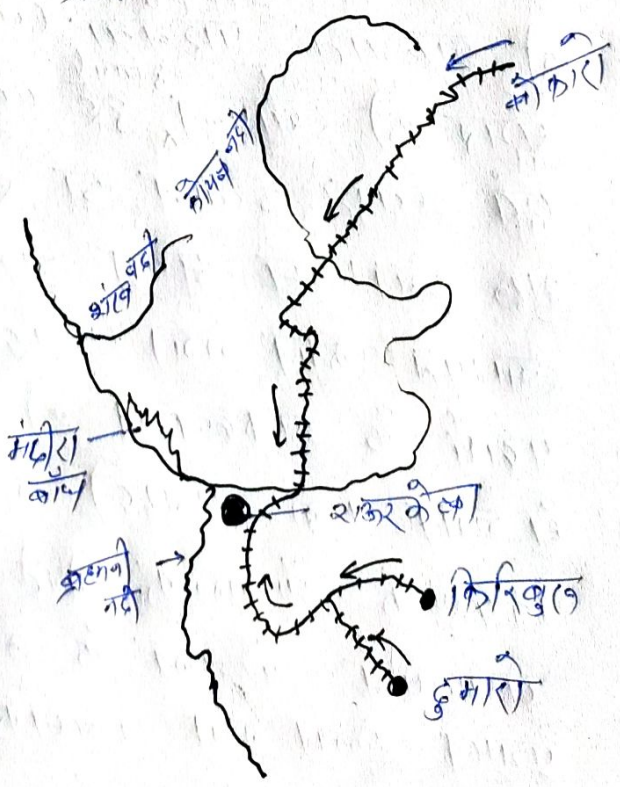 बोकारो
कोयल नदी
शंख नदी
मंदीरा
बाँध
राऊरकेला
ब्राहमनी
नदी
किरिबुल
दुमारो